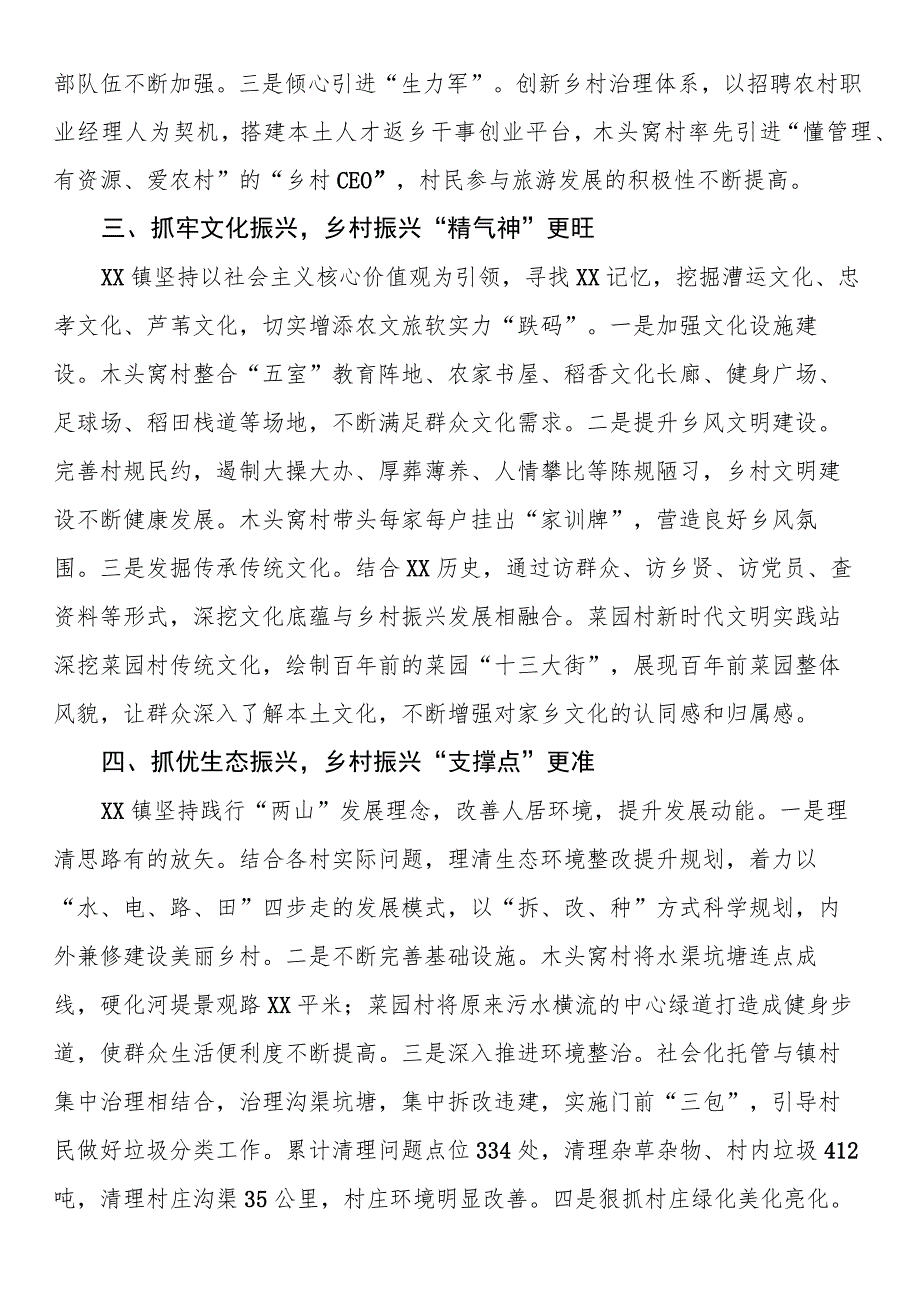 部队伍不断加强。三是倾心引进“生力军”。创新乡村治理体系，以招聘农村职
业经理人为契机，搭建本土人才返乡干事创业平台，木头窝村率先引进“懂管理、
有资源、爱农村”的“乡村CEO”，村民参与旅游发展的积极性不断提高。
三、抓牢文化振兴，乡村振兴“精气神”更旺
XX镇坚持以社会主义核心价值观为引领，寻找XX记忆，挖掘漕运文化、忠
孝文化、芦苇文化，切实增添农文旅软实力“跌码”。一是加强文化设施建
设。木头窝村整合“五室”教育阵地、农家书屋、稻香文化长廊、健身广场、
足球场、稻田栈道等场地，不断满足群众文化需求。二是提升乡风文明建设。
完善村规民约，遏制大操大办、厚葬薄养、人情攀比等陈规陋习，乡村文明建
设不断健康发展。木头窝村带头每家每户挂出“家训牌”，营造良好乡风氛
围。三是发掘传承传统文化。结合XX历史，通过访群众、访乡贤、访党员、查
资料等形式，深挖文化底蕴与乡村振兴发展相融合。菜园村新时代文明实践站
深挖菜园村传统文化，绘制百年前的菜园“十三大街”，展现百年前菜园整体
风貌，让群众深入了解本土文化，不断增强对家乡文化的认同感和归属感。
四、抓优生态振兴，乡村振兴“支撑点”更准
XX镇坚持践行“两山”发展理念，改善人居环境，提升发展动能。一是理
清思路有的放矢。结合各村实际问题，理清生态环境整改提升规划，着力以
“水、电、路、田”四步走的发展模式，以“拆、改、种”方式科学规划，内
外兼修建设美丽乡村。二是不断完善基础设施。木头窝村将水渠坑塘连点成
线，硬化河堤景观路XX平米；菜园村将原来污水横流的中心绿道打造成健身步
道，使群众生活便利度不断提高。三是深入推进环境整治。社会化托管与镇村
集中治理相结合，治理沟渠坑塘，集中拆改违建，实施门前“三包”，引导村
民做好垃圾分类工作。累计清理问题点位334处，清理杂草杂物、村内垃圾412
吨，清理村庄沟渠35公里，村庄环境明显改善。四是狠抓村庄绿化美化亮化。